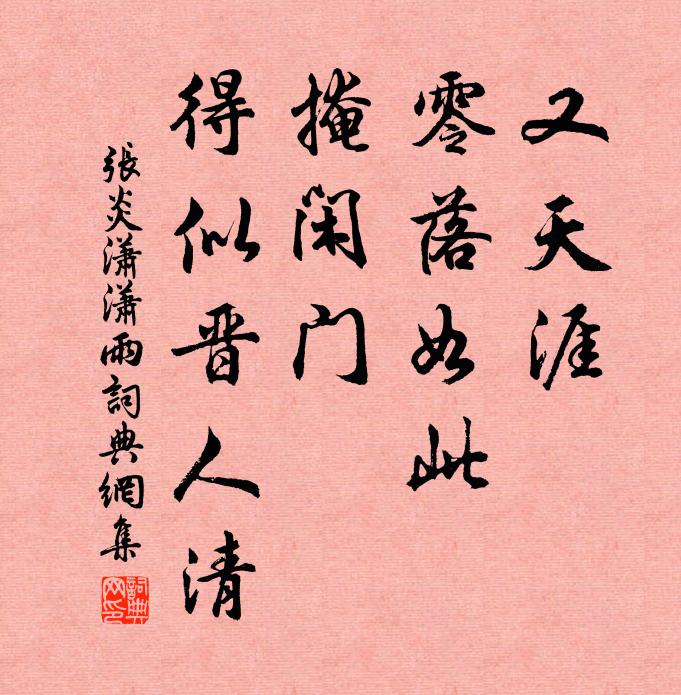 又天涯
零落如此
掩闲门
得似晋人清
張炎瀟瀟雨詞典網集
詞典網印